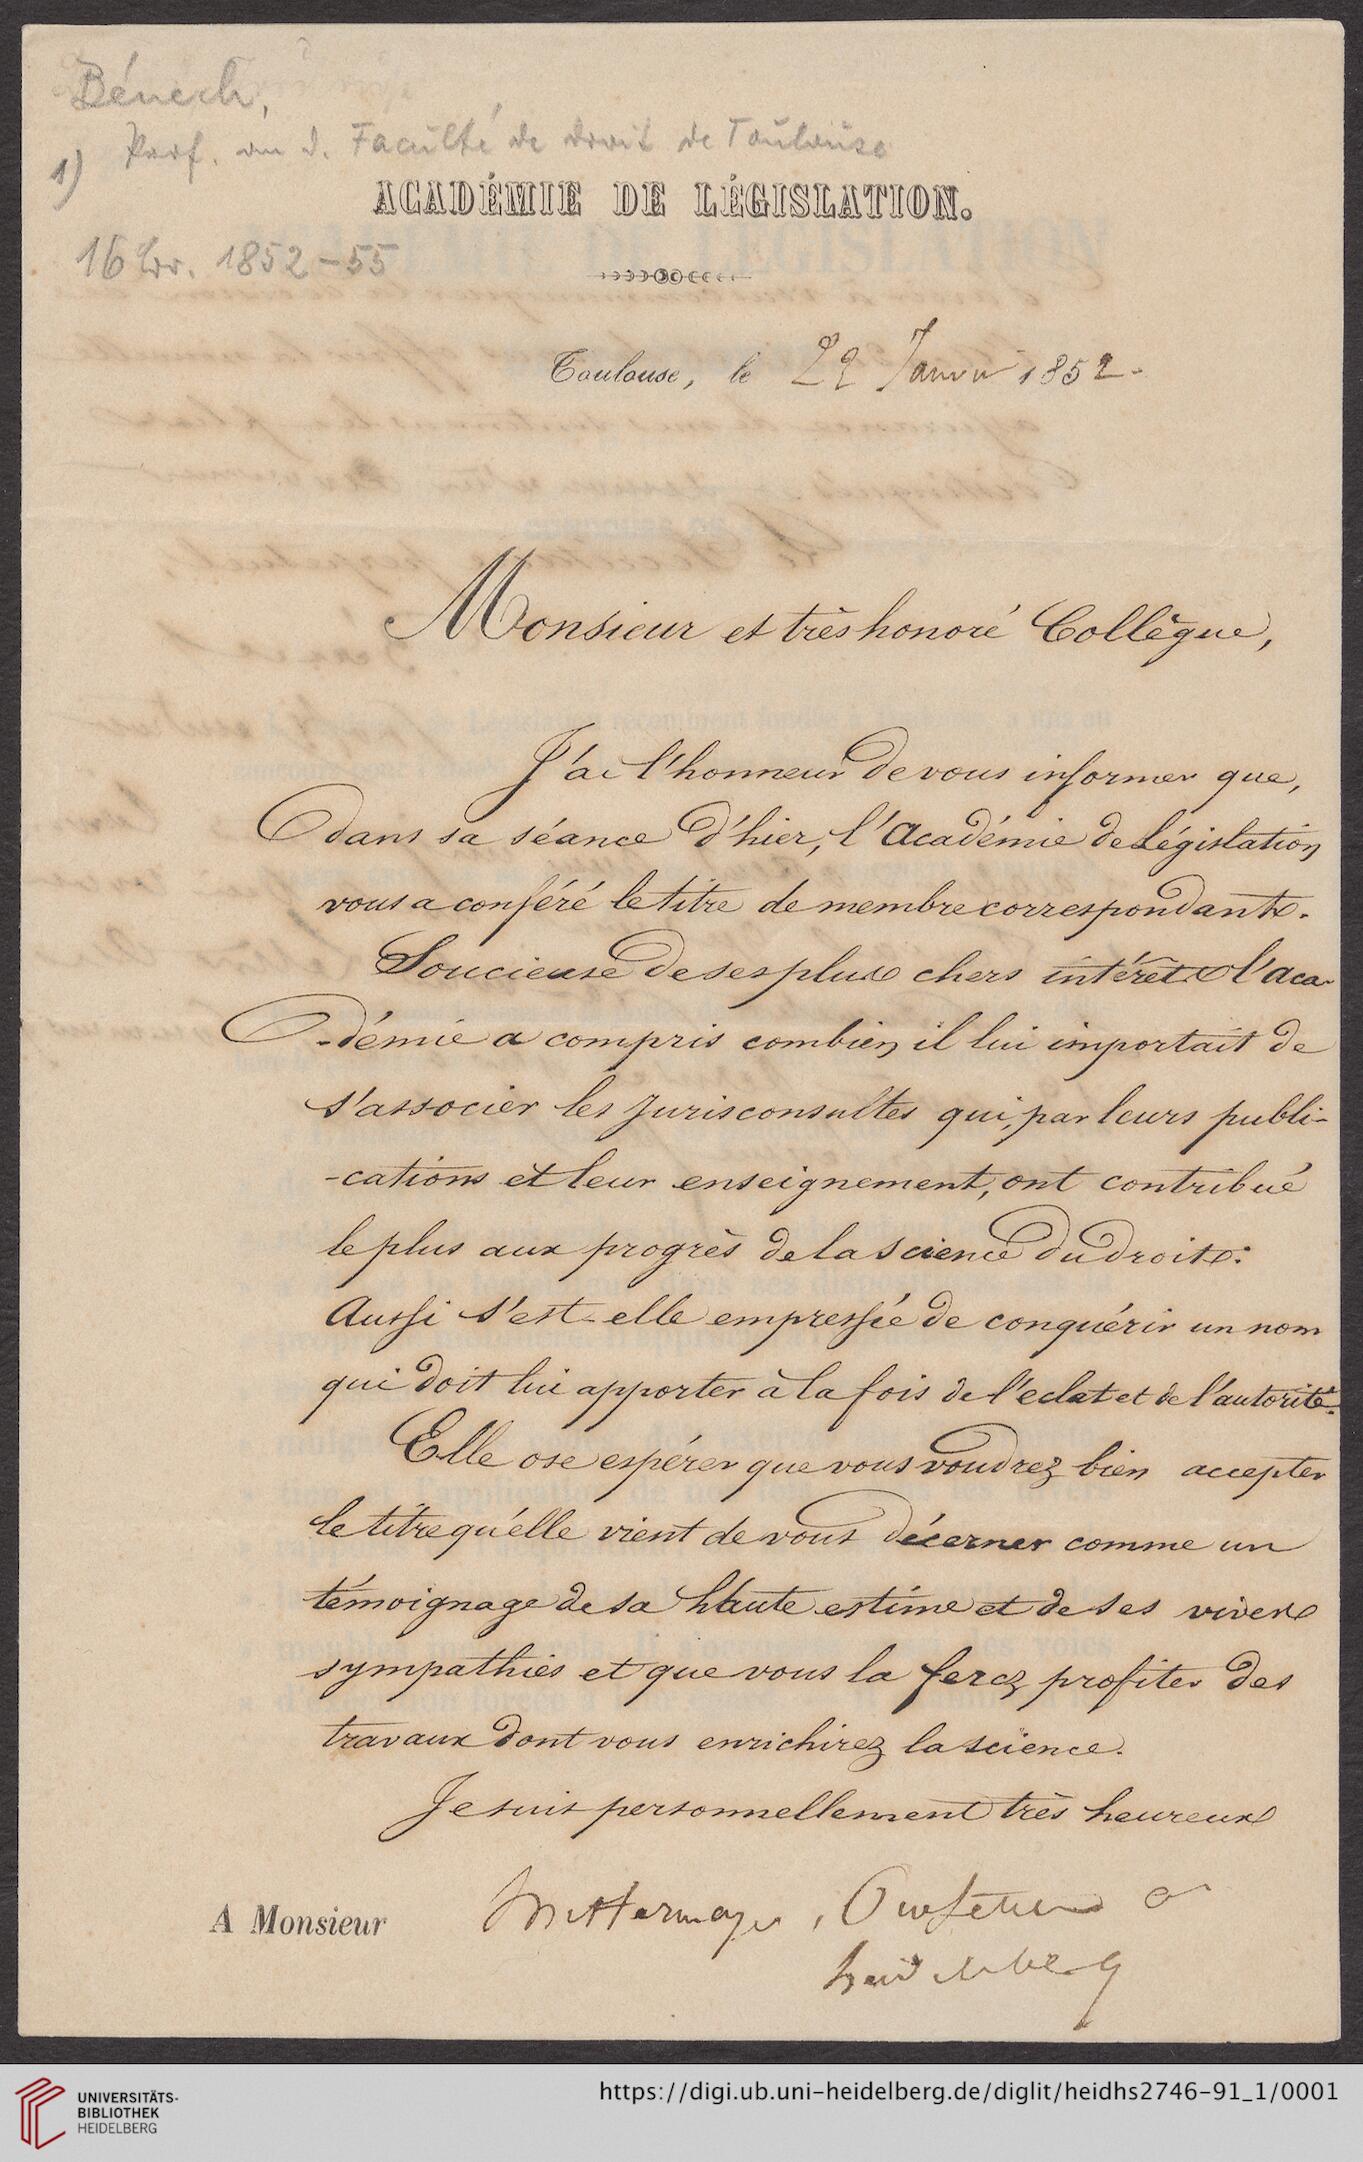 Bénech,
Prof. an d. Faculté de droit de Toulouse
1)
ACADÉMIE DE LÉGISLATION.
16 Br. 1852-55
Toulouse, le 22 Janvier 1852.
Monsieur et très honoré Collègue,
J'ai l'honneur de vous informer que,
dans sa séance d'hier, l'Académie de Législation
vous a conféré le titre de membre correspondant.
Soucieuse de ses plus chers intérêts l'aca-
-démie a compris combien il lui importait de
s'associer les Jurisconsultes qui, par leurs publi-
-cations et leur enseignement, ont contribué
le plus aux progrès de la science du droit:
Aussi s'est-elle empressée de conquérir un nom
qui doit lui apporter à la fois de l'eclat et de l'autorité.
Elle ose espérer que vous voudrez bien accepter
le titre qu'elle vient de vous décerner comme un
témoignage de sa haute estime et de ses vives
sympathies et que vous la ferez profiter des
travaux dont vous enrichirez la science.
Je suis personnellement très heureux
A Monsieur Mittermayer, Professeur a
heidelberg
UNIVERSITÄTS-
BIBLIOTHEK
HEIDELBERG
https://digi.ub.uni-heidelberg.de/diglit/heidhs2746-91_1/0001